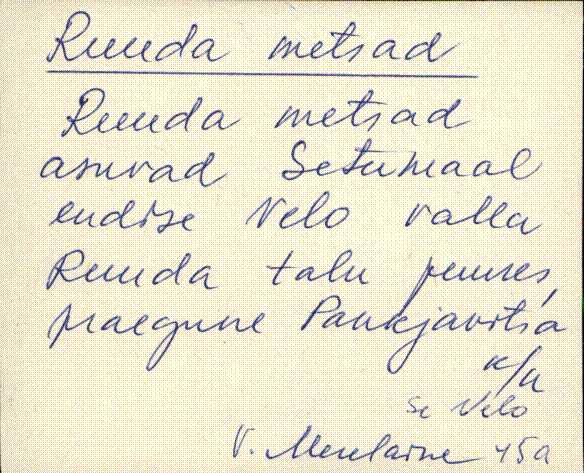 Ruuda metsad
Ruuda metsad
asuvad Setumaal
endise Velo valla
Ruuda talu juures,
praegune Pankjavitsa
k/n
Se Velo
V. Merelaine 45a